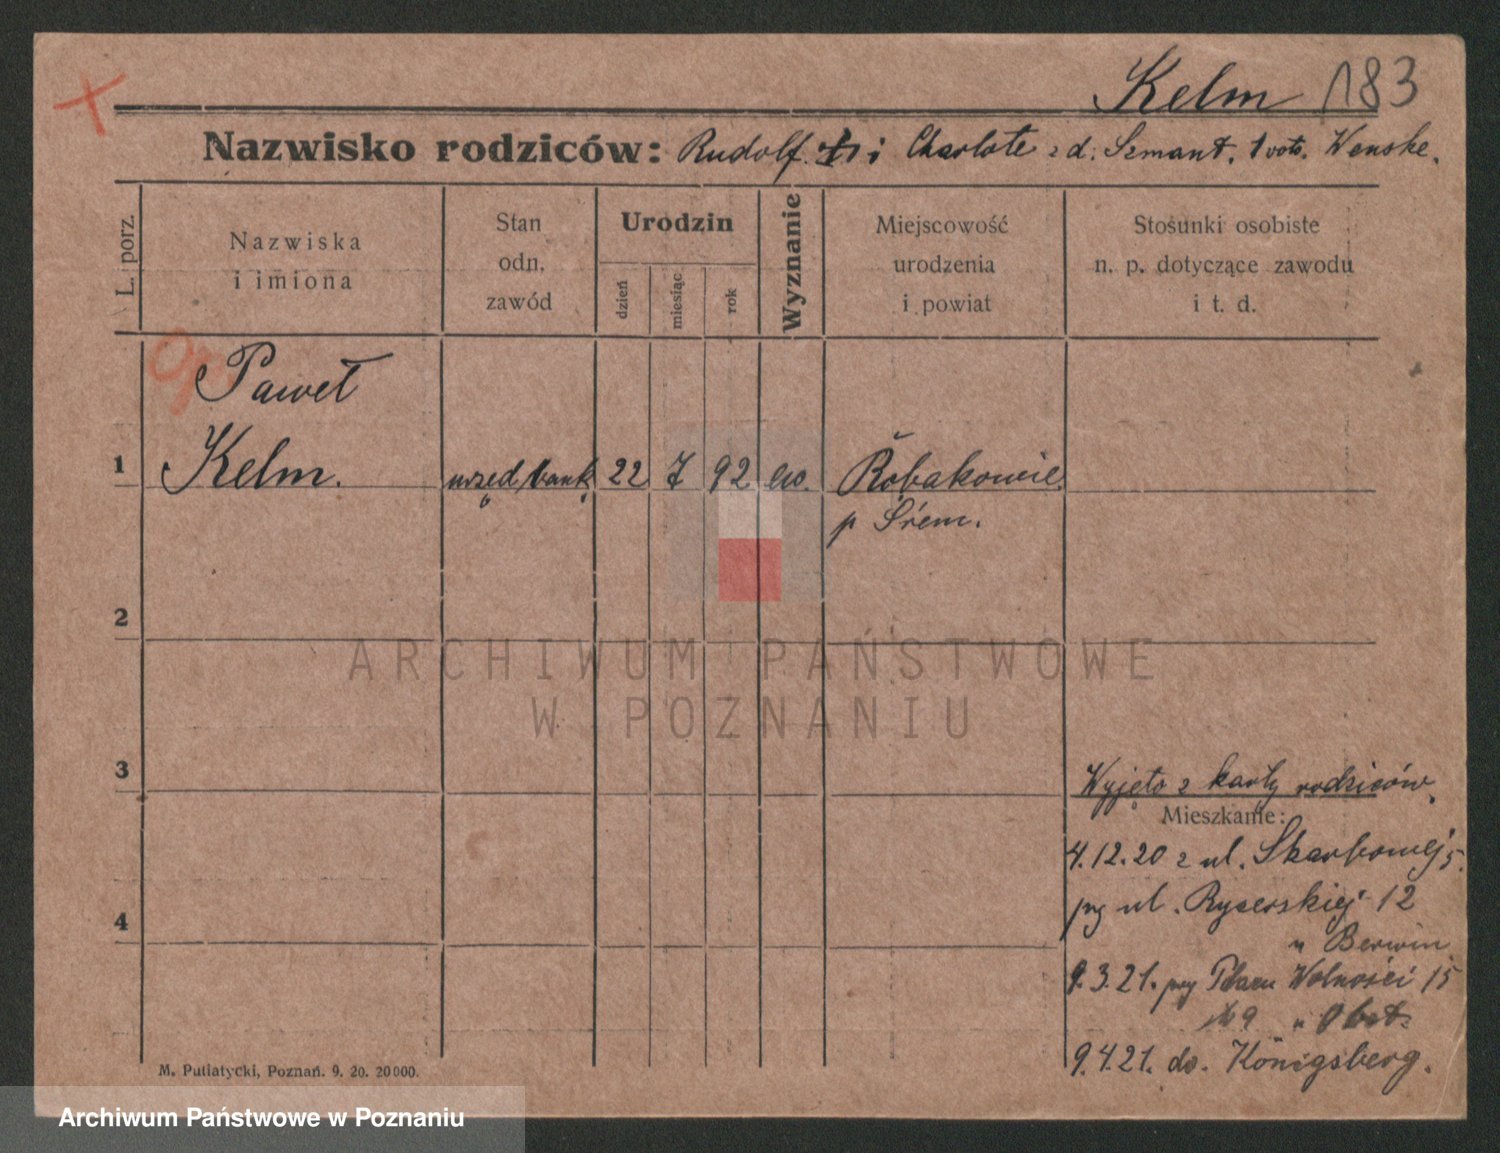 Kelm 183
Nazwisko rodziców: Rudolf. i Charlote z d. Szmant. 1 voto. Wenske.
L. porz.
Nazwiska
i imiona
Stan
odn.
zawód
Urodzin
dzień
miesiąc
rok
Wyznanie
Miejscowość
urodzenia
i powiat
Stosunki osobiste
n. p. dotyczące zawodu
i t. d.
Paweł
1 Kelm. urzęd bank. 22 7 92 ew. Robakowie
p Śrem.
2
3
Wyjęto z karty rodziców.
Mieszkanie:
4.12.20 z ul. Skarbowej 5.
prz ul. Rycerskiej 12
4
u Berwin
9.3.21. prz Placu Wolności 15
9 u
9.4.21. do. Königsberg.
M. Putiatycki, Poznań. 9. 20. 20000.
ARCHIWUM PAŃSTWOWE
W POZNANIU
Archiwum Państwowe w Poznaniu